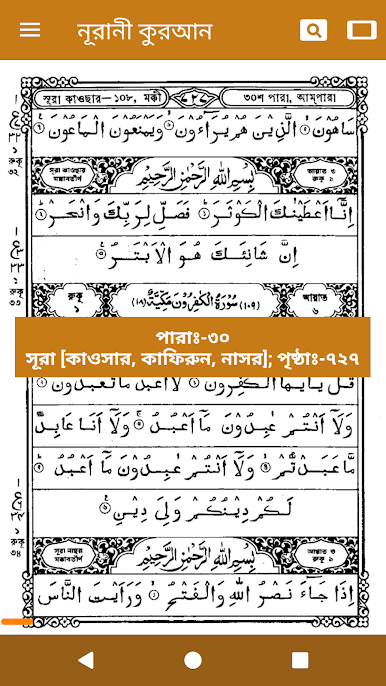 নূরানী কুরআন
সূরা কাওছার–১০৮, মক্কী
৭২৭
৩০শ পারা, আম্‌পারা
سَاهُوْنَ ۙ الَّذِيْنَ هُمْ يُرَآءُوْنَ ۙ وَيَمْنَعُوْنَ الْمَاعُوْنَ
সূরা কাওছার
মক্কাবতীর্ণ
بِسْمِ اللهِ الرَّحْمٰنِ الرَّحِيْمِ
আয়াত ৩
রুকূ ১
اِنَّآ اَعْطَيْنٰكَ الْكَوْثَرَ ۙ فَصَلِّ لِرَبِّكَ وَانْحَرْ
اِنَّ شَانِئَكَ هُوَ الْاَبْتَرُ
রুকূ
১
(١٨) سُوْرَةُ الْكٰفِرُوْنَ مَكِّيَّةٌ (١٠٩)
আয়াত
৬
পারাঃ-৩০
সূরা [কাওসার, কাফিরুন, নাসর]; পৃষ্ঠাঃ-৭২৭
قُلْ يٰٓاَيُّهَا الْكٰفِرُوْنَ ۙ لَآ اَعْبُدُ مَا تَعْبُدُوْنَ
وَلَآ اَنْتُمْ عٰبِدُوْنَ مَآ اَعْبُدُ ۚ وَلَآ اَنَا عَابِدٌ
مَّا عَبَدْتُّمْ ۙ وَلَآ اَنْتُمْ عٰبِدُوْنَ مَآ اَعْبُدُ
لَكُمْ دِيْنُكُمْ وَلِيَ دِيْنِ
সূরা নাছর
মক্কাবতীর্ণ
بِسْمِ اللهِ الرَّحْمٰنِ الرَّحِيْمِ
আয়াত ৩
রুকূ ১
اِذَا جَآءَ نَصْرُ اللهِ وَالْفَتْحُ ۙ وَرَاَيْتَ النَّاسَ